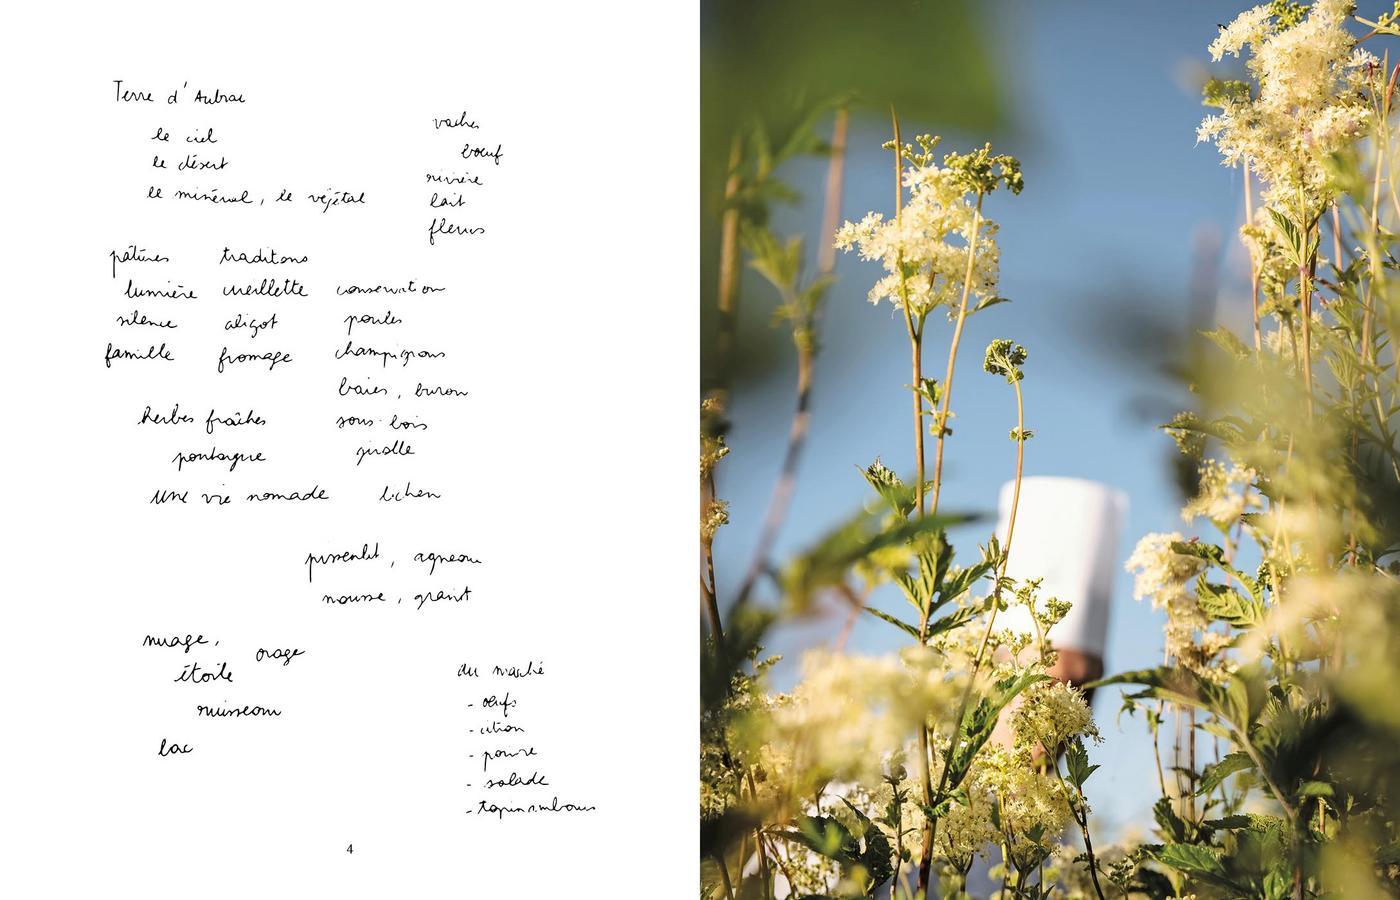 Terre d'Aubrac
le ciel
le désert
le minéral, le végétal
vaches
bœuf
rivière
lait
fleurs
pâtures traditons
lumière cueillette conservation
silence aligot poules
famille fromage champignons
baies, buron
herbes fraîches sous-bois
pontargue girolle
une vie nomade lichen
pissenlit, agneau
mousse, granit
nuage,
orage
étoile
ruisseau
lac
du marché
- œufs
- citron
- poivre
- salade
- topinambours
4